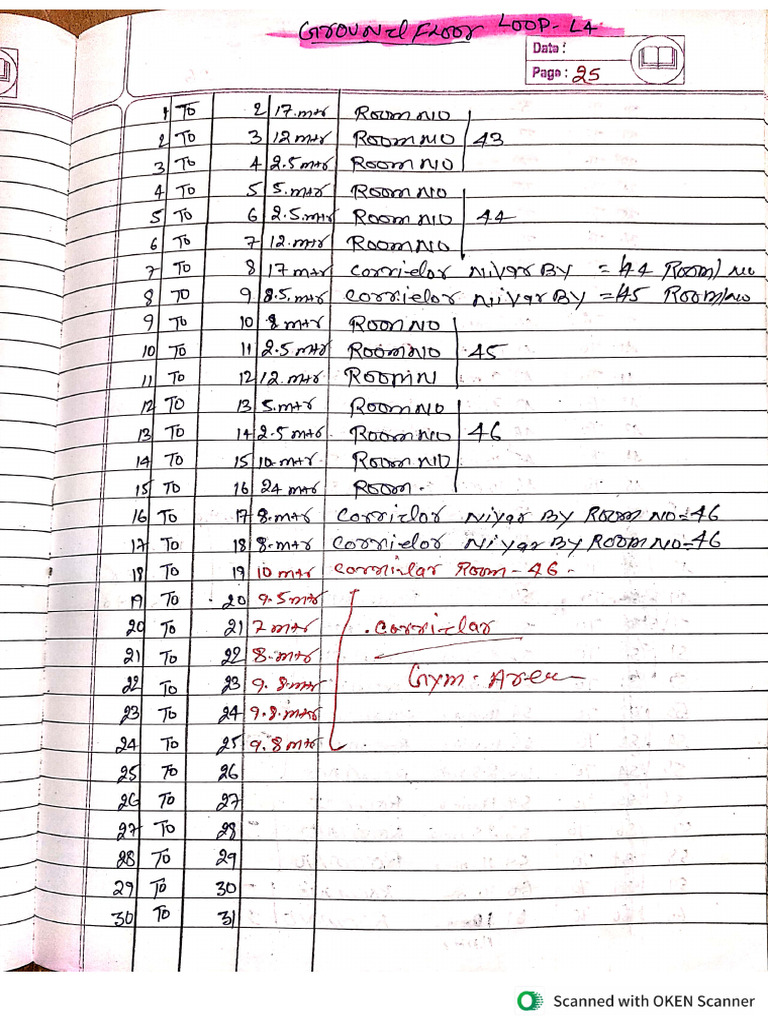 GROUNd FLOOR LOOP-L4
Date :
Page : 25
1 TO 2 17.mtr Room NO
2 TO 3 12 mtr Room NO 43
3 TO 4 2.5 mtr Room NO
4 TO 5 5.mtr Room NO
5 TO 6 2.5 mtr Room NO 44
6 TO 7 12.mtr Room NO
7 TO 8 17 mtr Corridor Niyar By = 44 Room NO
8 TO 9 8.5.mtr Corridor Niyar By = 45 Room NO
9 TO 10 8 mtr Room NO
10 TO 11 2.5 mtr Room NO 45
11 TO 12 12.mtr Room N
12 TO 13 5.mtr Room NO
13 TO 14 2.5 mtr Room NO 46
14 TO 15 10.mtr Room NO
15 TO 16 24 mtr Room.
16 TO 17 8.mtr Corridor Niyar By Room NO=46
17 TO 18 8.mtr Corridor Niyar By Room NO=46
18 TO 19 10 mtr Corridar Room - 46.
19 TO 20 9.5 mtr
20 TO 21 7 mtr Corridar
21 TO 22 8.mtr
22 TO 23 9.8 mtr Gym. Area
23 TO 24 9.8.mtr
24 TO 25 9.8 mtr
25 TO 26
26 TO 27
27 TO 28
28 TO 29
29 TO 30
30 TO 31
Scanned with OKEN Scanner